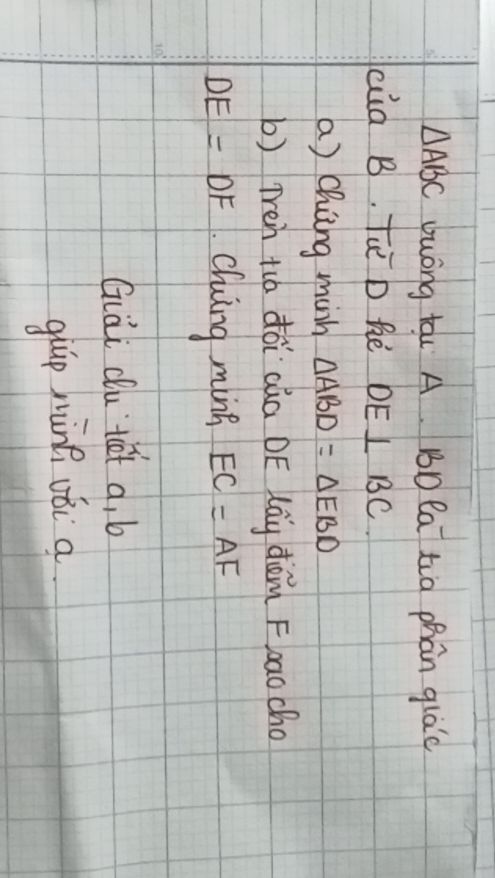 ΔABC vuông tại A. BD là tia phân giác
của B. Từ D kẻ DE ⊥ BC.
a) Chứng minh ΔABD = ΔEBD
b) Trên tia đối của DE lấy điểm F sao cho
DE = DF. Chứng minh EC = AF
Giải chi tiết a, b
giúp mình với ạ.